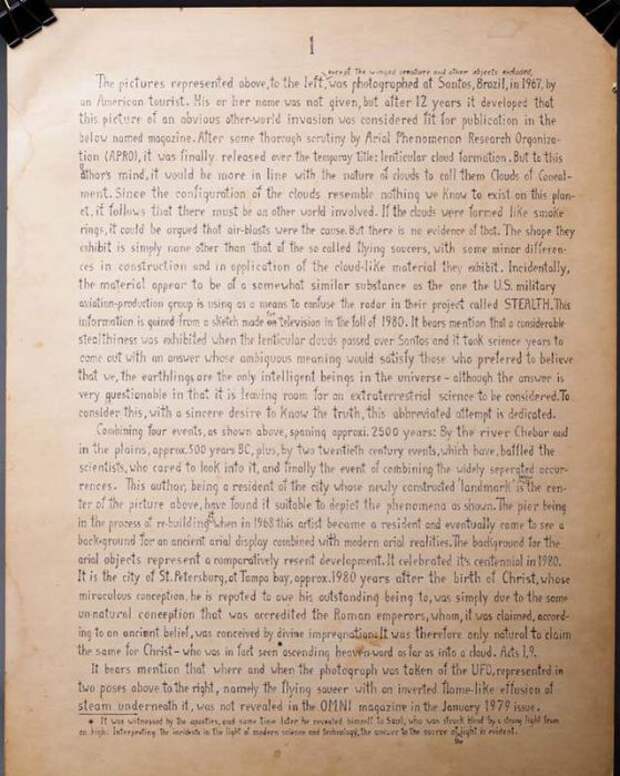 1
except the winged creature and other objects included,
The pictures represented above, to the left, was photographed at Santos, Brazil, in 1967, by
an American tourist. His or her name was not given, but after 12 years it developed that
this picture of an obvious other-world invasion was considered fit for publication in the
below named magazine. After some thorough scrutiny by Arial Phenomenon Research Organiza-
tion (APRO), it was finally released over the temporay title: lenticular cloud formation. But to this
athor's mind, it would be more in line with the nature of clouds to call them Clouds of Conceal-
ment. Since the configuration of the clouds resemble nothing we know to exist on this plan-
et, it follows that there must be an other world involved. If the clouds were formed like smoke
rings, it could be argued that air-blasts were the cause. But there is no evidence of that. The shape they
exhibit is simply none other than that of the so called flying saucers, with some minor differen-
ces in construction and in application of the cloud-like material they exhibit. Incidentally,
the material appear to be of a somewhat similar substance as the one the U.S. military
aviation-production group is using as a means to confuse the radar in their project called STEALTH. This
information is gained from a sketch made for television in the fall of 1980. It bears mention that a considerable
stealthiness was exhibited when the lenticular clouds passed over Santos and it took science years to
come out with an answer whose ambiguous meaning would satisfy those who prefered to believe
that we, the earthlings are the only intelligent beings in the universe – although the answer is
very questionable in that it is leaving room for an extraterrestrial science to be considered. To
consider this, with a sincere desire to know the truth, this abbreviated attempt is dedicated.
Combining four events, as shown above, spaning approxi. 2500 years: By the river Chebar and
in the plains, approx. 500 years BC, plus, by two twentieth century events, which have, baffled the
scientists, who cared to look into it, and finally the event of combining the widely seperated occur-
rences. This author, being a resident of the city whose newly constructed 'landmark' is the cen-
ter of the picture above, have found it suitable to depict the phenomena as shown. The pier being
in the process of re-building when in 1968 this artist became a resident and eventually came to see a
background for an ancient arial display combined with modern arial realities. The background for the
arial objects represent a comparatively resent development. It celebrated it's centennial in 1980.
It is the city of St. Petersburg, at Tampa bay, approx. 1980 years after the birth of Christ, whose
miraculous conception, he is reputed to owe his outstanding being to, was simply due to the same
un-natural conception that was accredited the Roman emperors, whom, it was claimed, accord-
ing to an ancient belief, was conceived by divine impregnation. It was therefore only natural to claim
the same for Christ – who was in fact seen * ascending heaven-ward as far as into a cloud. Acts 1,9.
It bears mention that where and when the photograph was taken of the UFO, represented in
two poses above to the right, namely the flying saucer with an inverted flame-like effusion of
steam underneath it, was not revealed in the OMNI magazine in the January 1979 issue.
* It was witnessed by the apostles, and some time later he revealed himself to Saul, who was struck blind by a strong light from
on high. Interpreting the incidents in the light of modern science and technology, the answer to the source of the light is evident.